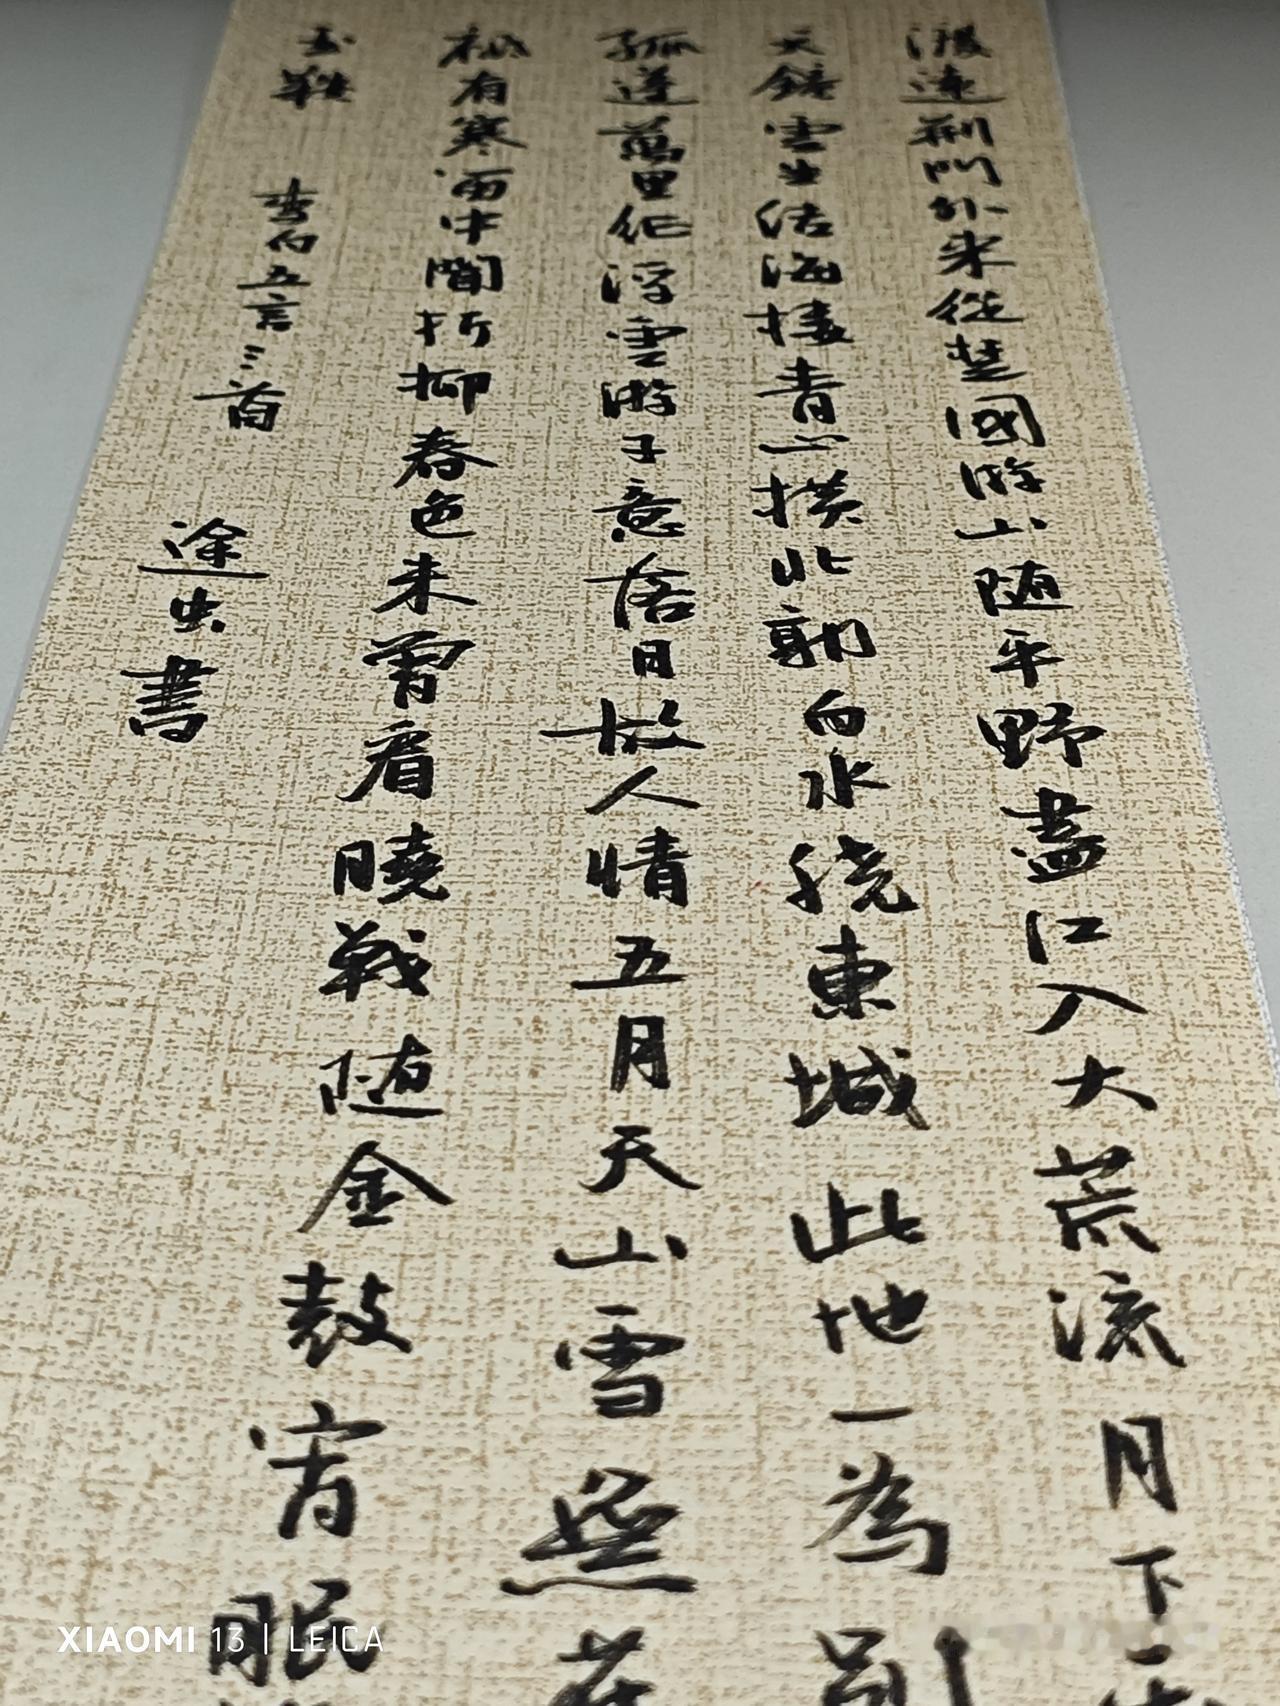 渡遠荆門外来從楚國游山随平野盡江入大荒流月下
天鏡雲生结海楼青山横北郭白水绕東城此地一為别
孤蓬萬里征浮雲游子意落日故人情五月天山雪無花
祗有寒笛中聞折柳春色未曾看曉戰随金鼓宵眠
玉鞍 李白五言三首 途虫書
XIAOMI 13 | LEICA